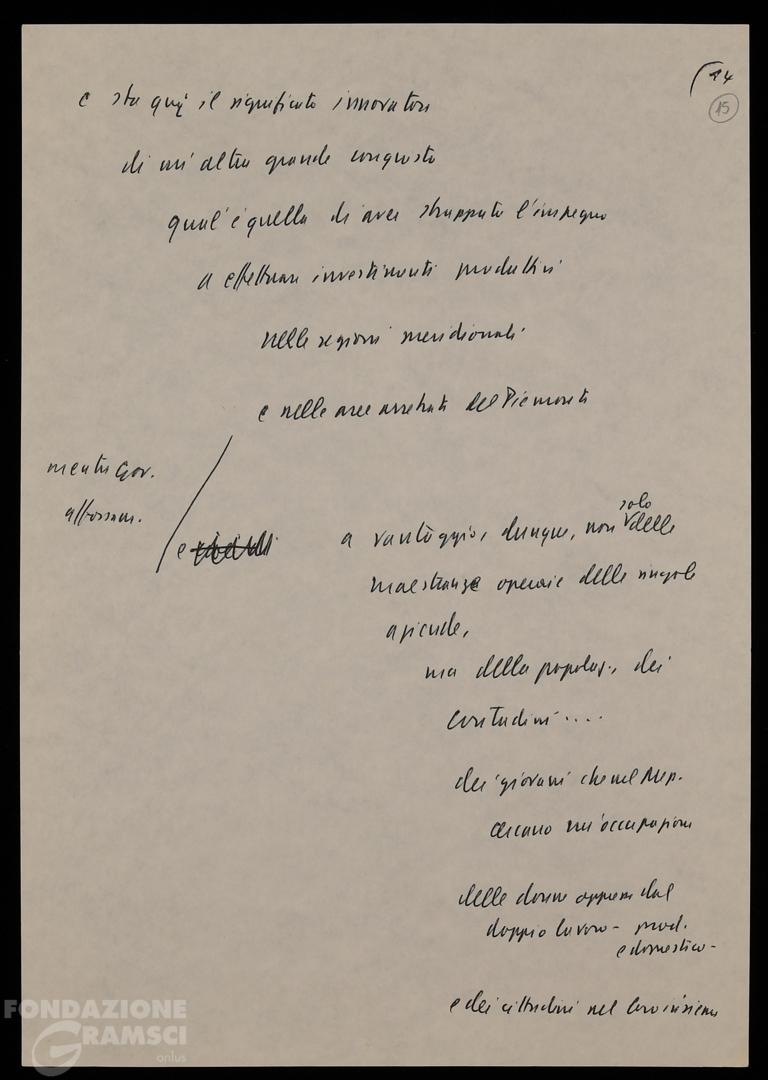 14
15
e sta quì il significato innovatore
di un'altra grande conquista
qual'è quella di aver strappato l'impegno
a effettuare investimenti produttivi
nelle regioni meridionali
e nelle aree arretrate del Piemonte
mentre Gov.
affossam.
e
a vantaggio, dunque, non solo delle
maestranze operaie delle singole
aziende,
ma della popolaz., dei
contadini ....
dei giovani che nel Mep.
cercano un'occupazione
delle donne oppresse dal
doppio lavoro - prod.
e domestico -
e dei cittadini nel loro insieme
FONDAZIONE
GRAMSCI
onlus